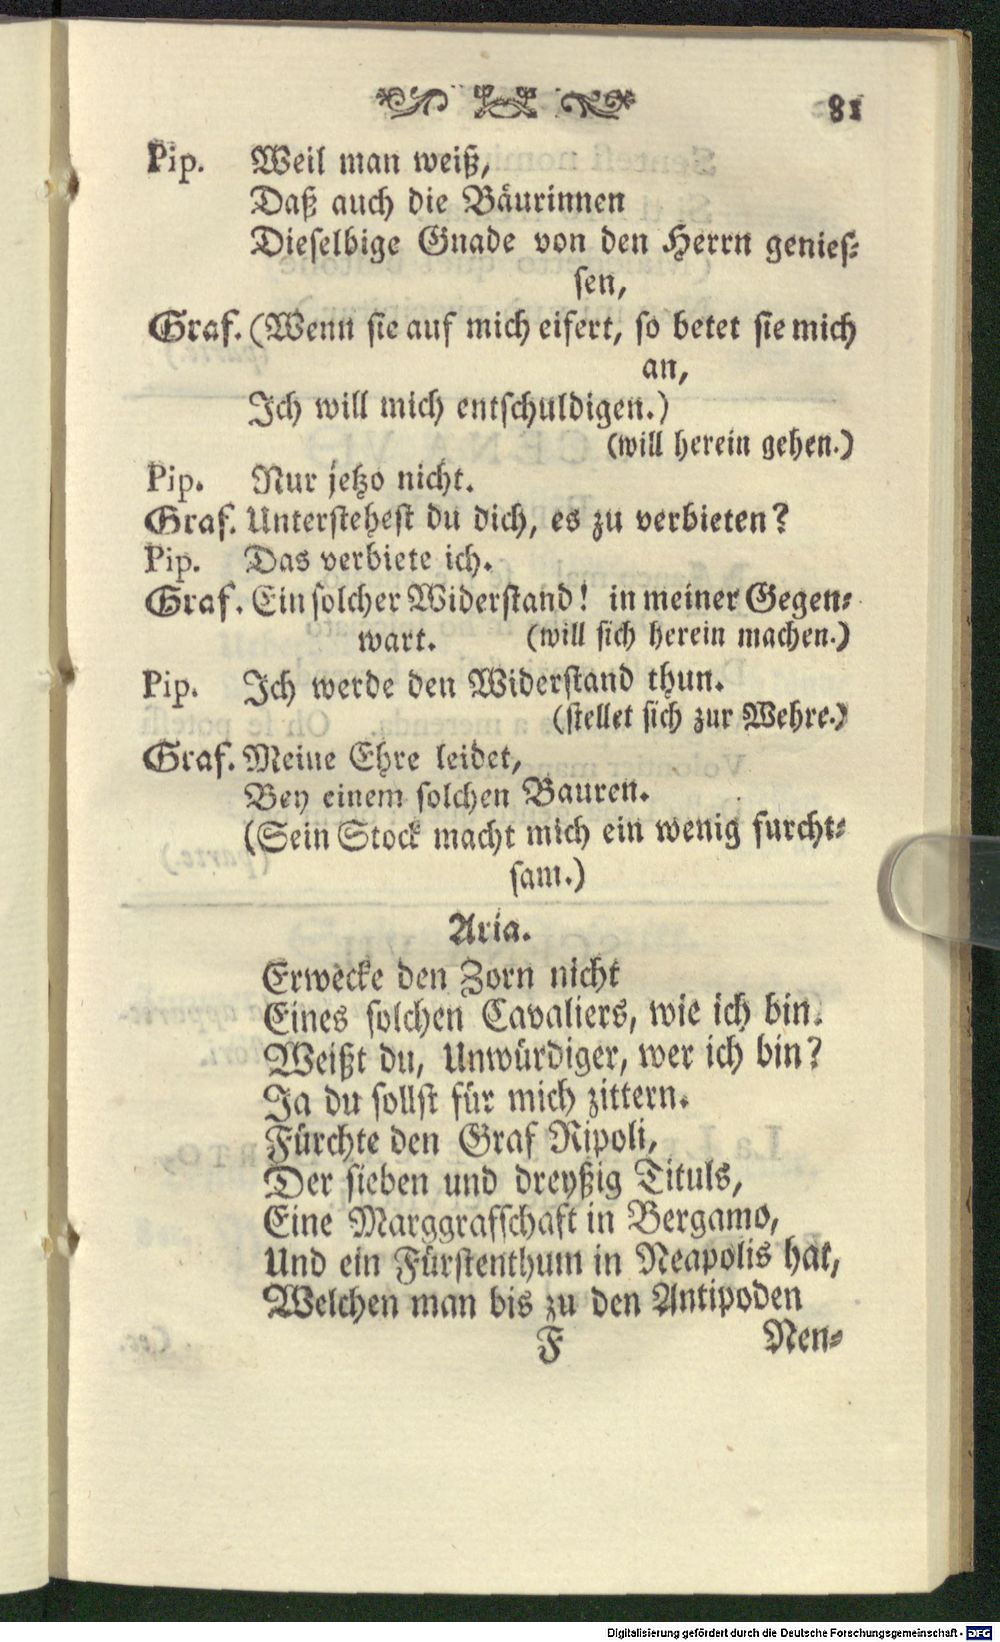 81
Pip. Weil man weiß,
Daß auch die Bäurinnen
Dieselbige Gnade von den Herrn genies-
sen,
Graf. (Wenn sie auf mich eifert, so betet sie mich
an,
Ich will mich entschuldigen.)
(will herein gehen.)
Pip. Nur jetzo nicht.
Graf. Unterstehest du dich, es zu verbieten?
Pip. Das verbiete ich.
Graf. Ein solcher Widerstand! in meiner Gegen-
wart. (will sich herein machen.)
Pip. Ich werde den Widerstand thun.
(stellet sich zur Wehre.)
Graf. Meine Ehre leidet,
Bey einem solchen Bauren.
(Sein Stock macht mich ein wenig furcht-
sam.)
Aria.
Erwecke den Zorn nicht
Eines solchen Cavaliers, wie ich bin.
Weißt du, Unwürdiger, wer ich bin?
Ja du sollst für mich zittern.
Fürchte den Graf Ripoli,
Der sieben und dreyßig Tituls,
Eine Marggrafschaft in Bergamo,
Und ein Fürstenthum in Neapolis hat,
Welchen man bis zu den Antipoden
F Nen-
Digitalisierung gefördert durch die Deutsche Forschungsgemeinschaft - DFG